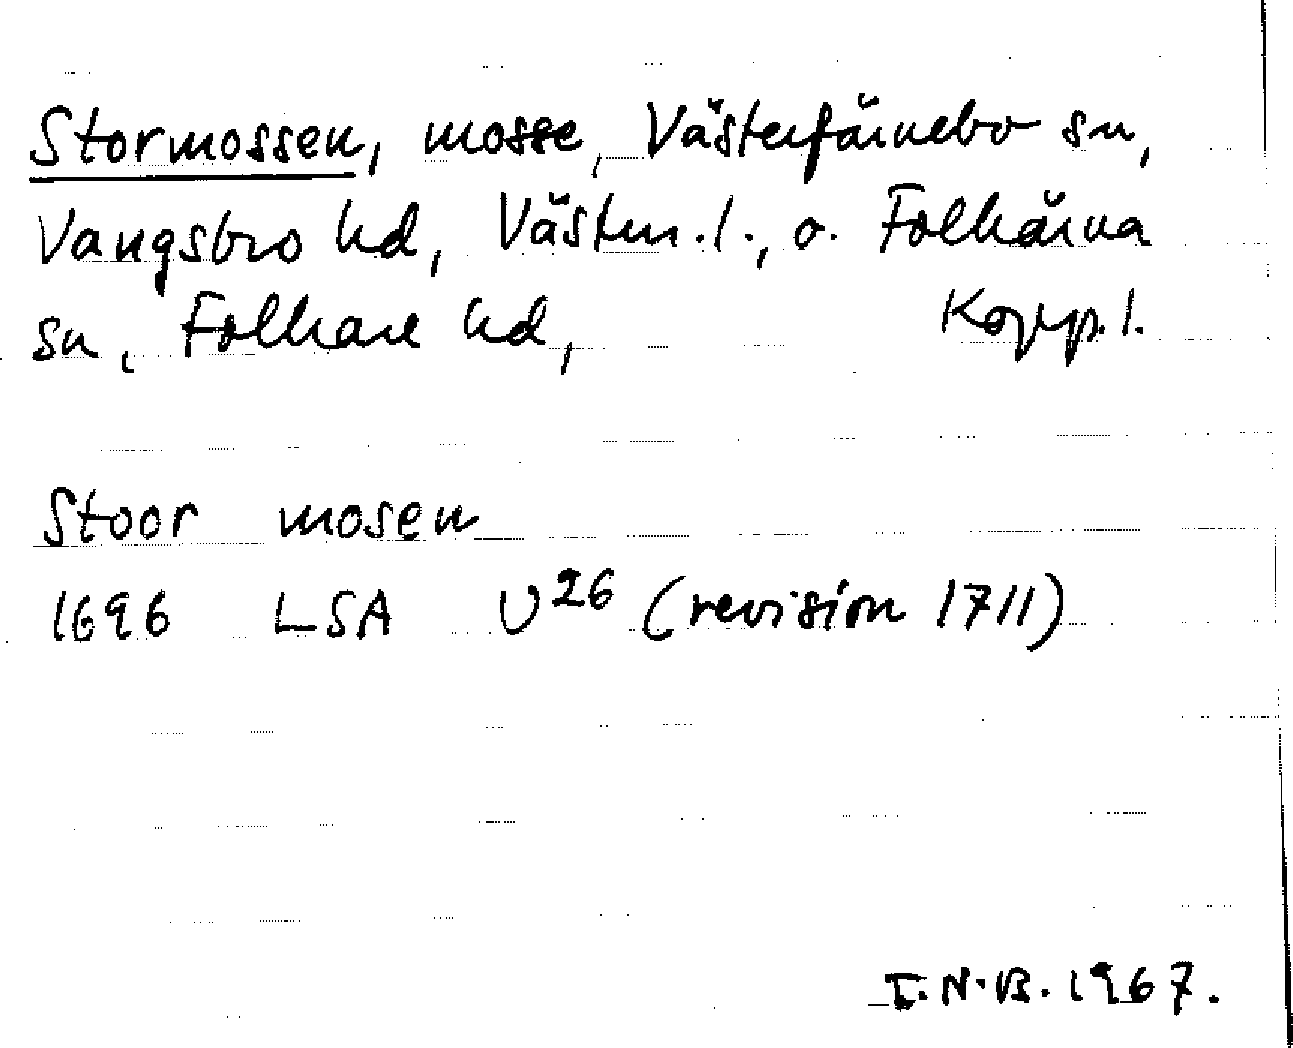 Stormossen, mosse, Västerfärnebo sn,
Vangsbro hd, Västm. l., o. Folkärna
sn, Folkare hd, Kopp. l.
Stoor mosen
1696 LSA U26 (revision 1711)
I.N.B. 1967.